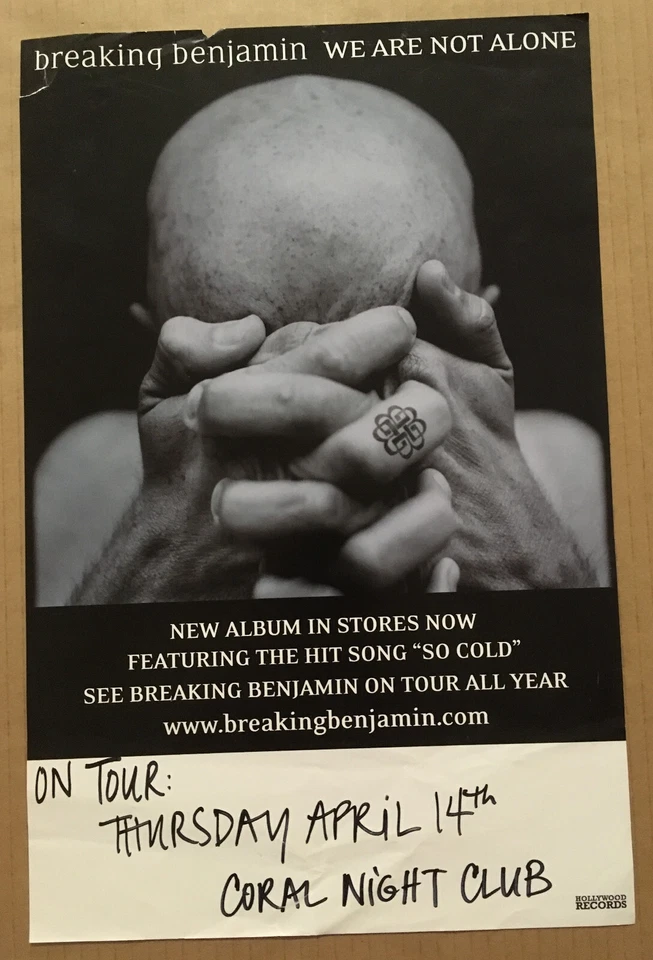 breaking benjamin WE ARE NOT ALONE
NEW ALBUM IN STORES NOW
FEATURING THE HIT SONG “SO COLD”
SEE BREAKING BENJAMIN ON TOUR ALL YEAR
www.breakingbenjamin.com
ON TOUR:
THURSDAY APRIL 14th
CORAL NIGHT CLUB
HOLLYWOOD
RECORDS